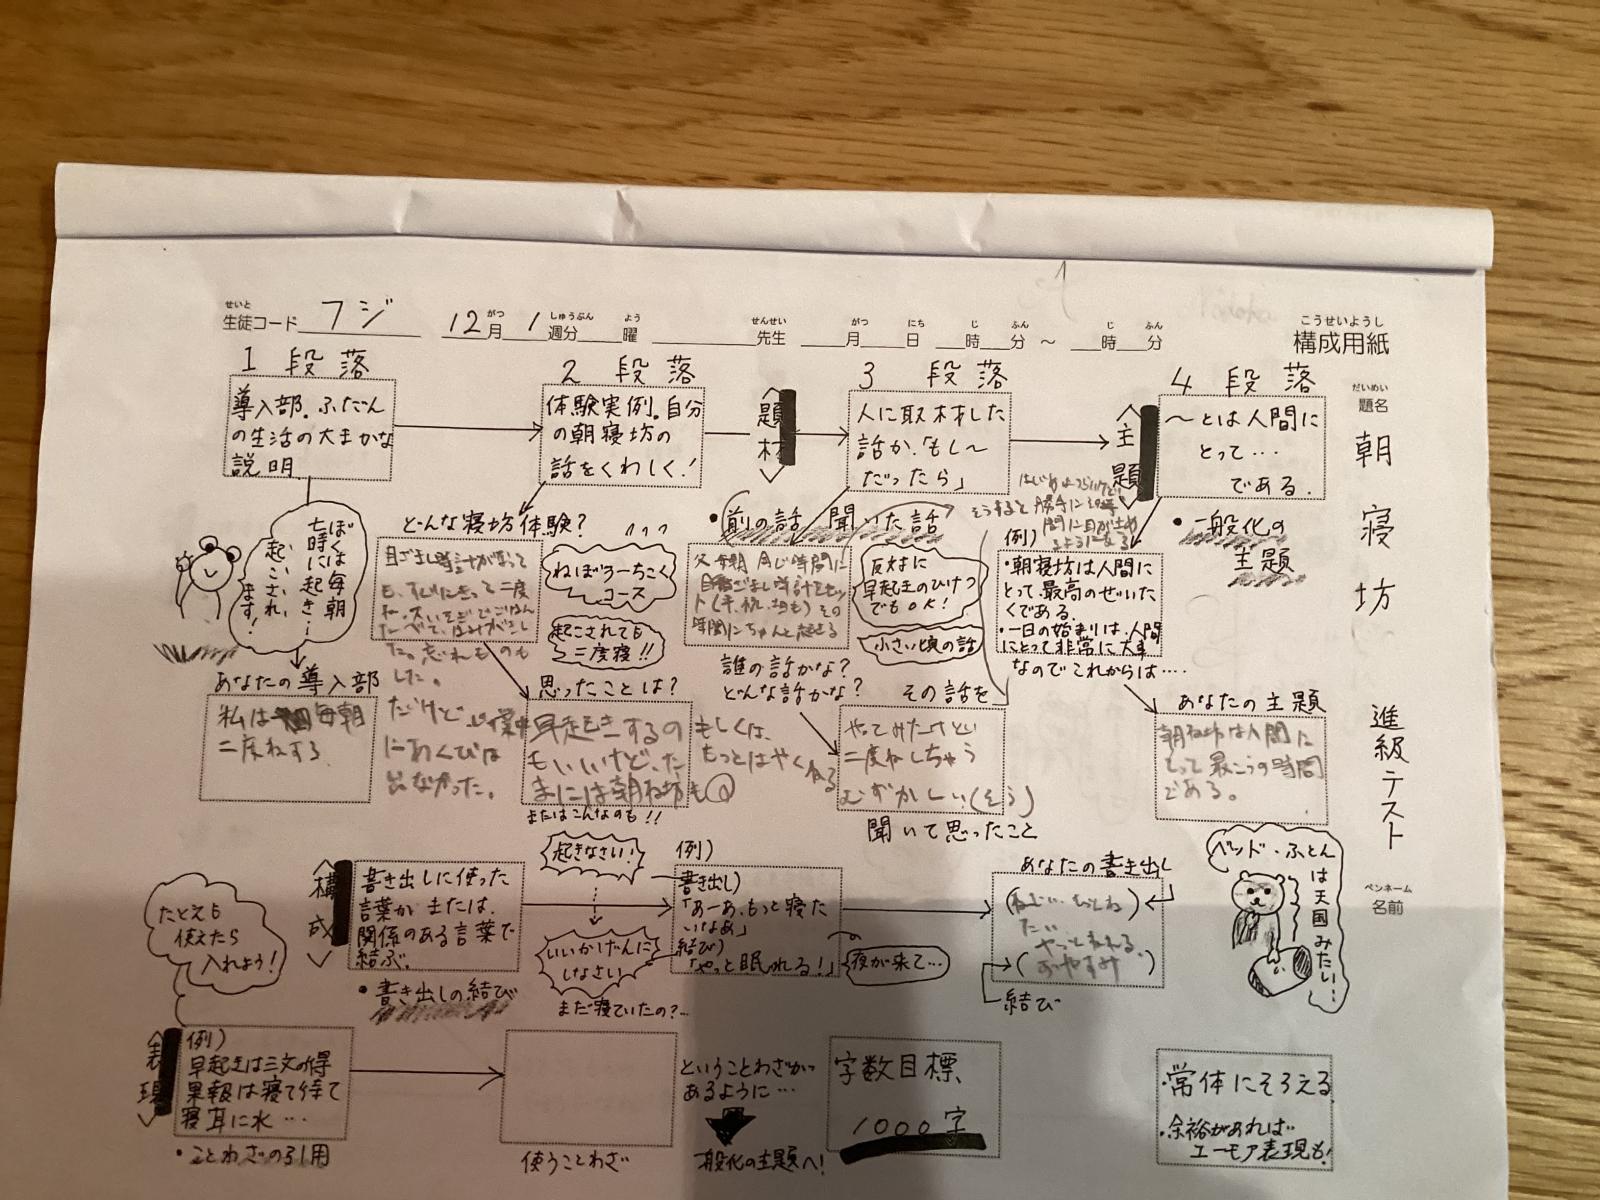 せいと
生徒コード フジ
がつ しゅうぶん よう
12月 1週分 曜
せんせい
先生
がつ にち じ ふん じ ふん
月 日 時 分 〜 時 分
こうせいようし
構成用紙
だいめい
題名
朝寝坊
進級テスト
ペンネーム
名前
1 段落
導入部。ふだん
の生活の大まかな
説明
ぼくは毎朝
七時に起き…
い、いえ、
起こされ
ます!
あなたの導入部
私は毎朝
二度ねする
2 段落
体験実例。自分
の朝寝坊の
話をくわしく!
どんな寝坊体験?
目ざまし時計がなって
した。
だけど
にあくびは
出なかった。
ねぼうーちこく
コース
起こされても
二度寝!!
思ったことは?
早起きするの
もいいけど、た
まには朝ね坊も
またはこんなのも!!
もしくは、
もっとはやくねる
〈題材〉
3 段落
人に取材した
話か、「もし〜
だったら」
・前の話 聞いた話
父 毎朝 同じ時間に
時間にちゃんと起きる
反対に
早起きのひけつ
でもOK!
小さい頃の話
誰の話かな?
どんな話かな?
その話を
やってみたけど
二度ねしちゃう
むずかしい(そう)
聞いて思ったこと
〈主題〉
4 段落
〜とは人間に
とって…
である。
・一般化の
主題
例)
・朝寝坊は人間に
とって、最高のぜいた
くである。
・一日の始まりは、人間
にとって非常に大事
なのでこれからは…
あなたの主題
朝ね坊は人間に
とって最こうの時間
である。
ベッド・ふとん
は天国みたい…
〈構成〉
書き出しに使った
言葉か または、
関係のある言葉で
結ぶ。
・書き出しの結び
起きなさい!
いいかげんに
しなさい
まだ寝ていたの?…
例)
書き出し)
「あーあ、もっと寝た
いなぁ」
結び)
「やっと眠れる!」
夜が来て…
あなたの書き出し
たい
やっとねれる
おやすみ
結び
たとえも
使えたら
入れよう!
〈表現〉
例)
早起きは三文の得
果報は寝て待て
寝耳に水…
・ことわざの引用
使うことわざ
ということわざが
あるように…
一般化の主題へ!
字数目標
1000字
・常体にそろえる
・余裕があれば
ユーモア表現も!